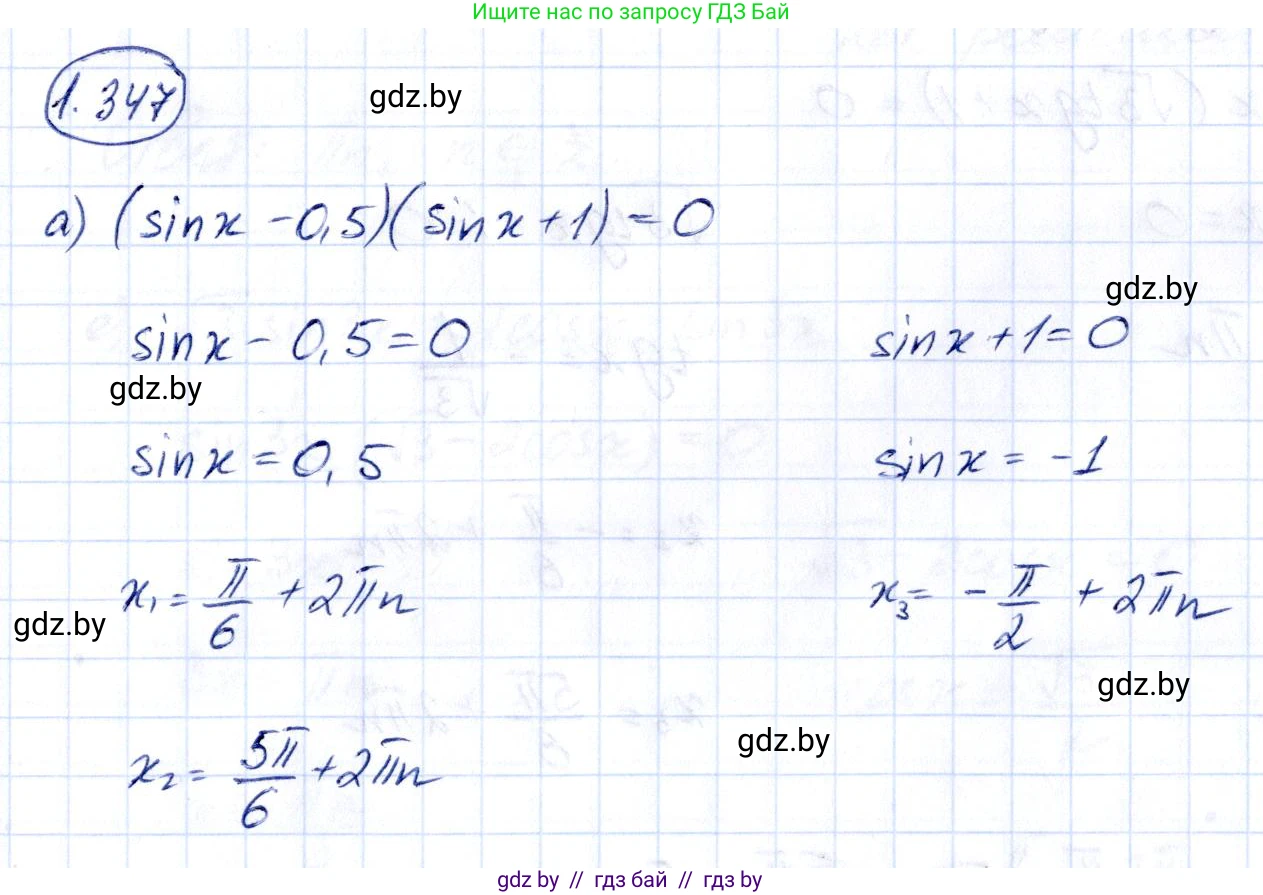 Ищите нас по запросу ГДЗ Бай
1.347
gdz.by
а) (sinx - 0,5)(sinx + 1) = 0
gdz.by
sinx - 0,5 = 0
sinx + 1 = 0
gdz.by
sinx = 0,5
sinx = -1
x₁ = π/6 + 2πn
x₃ = -π/2 + 2πn
gdz.by
gdz.by
gdz.by
x₂ = 5π/6 + 2πn
gdz.by // гдз бай // гдз by